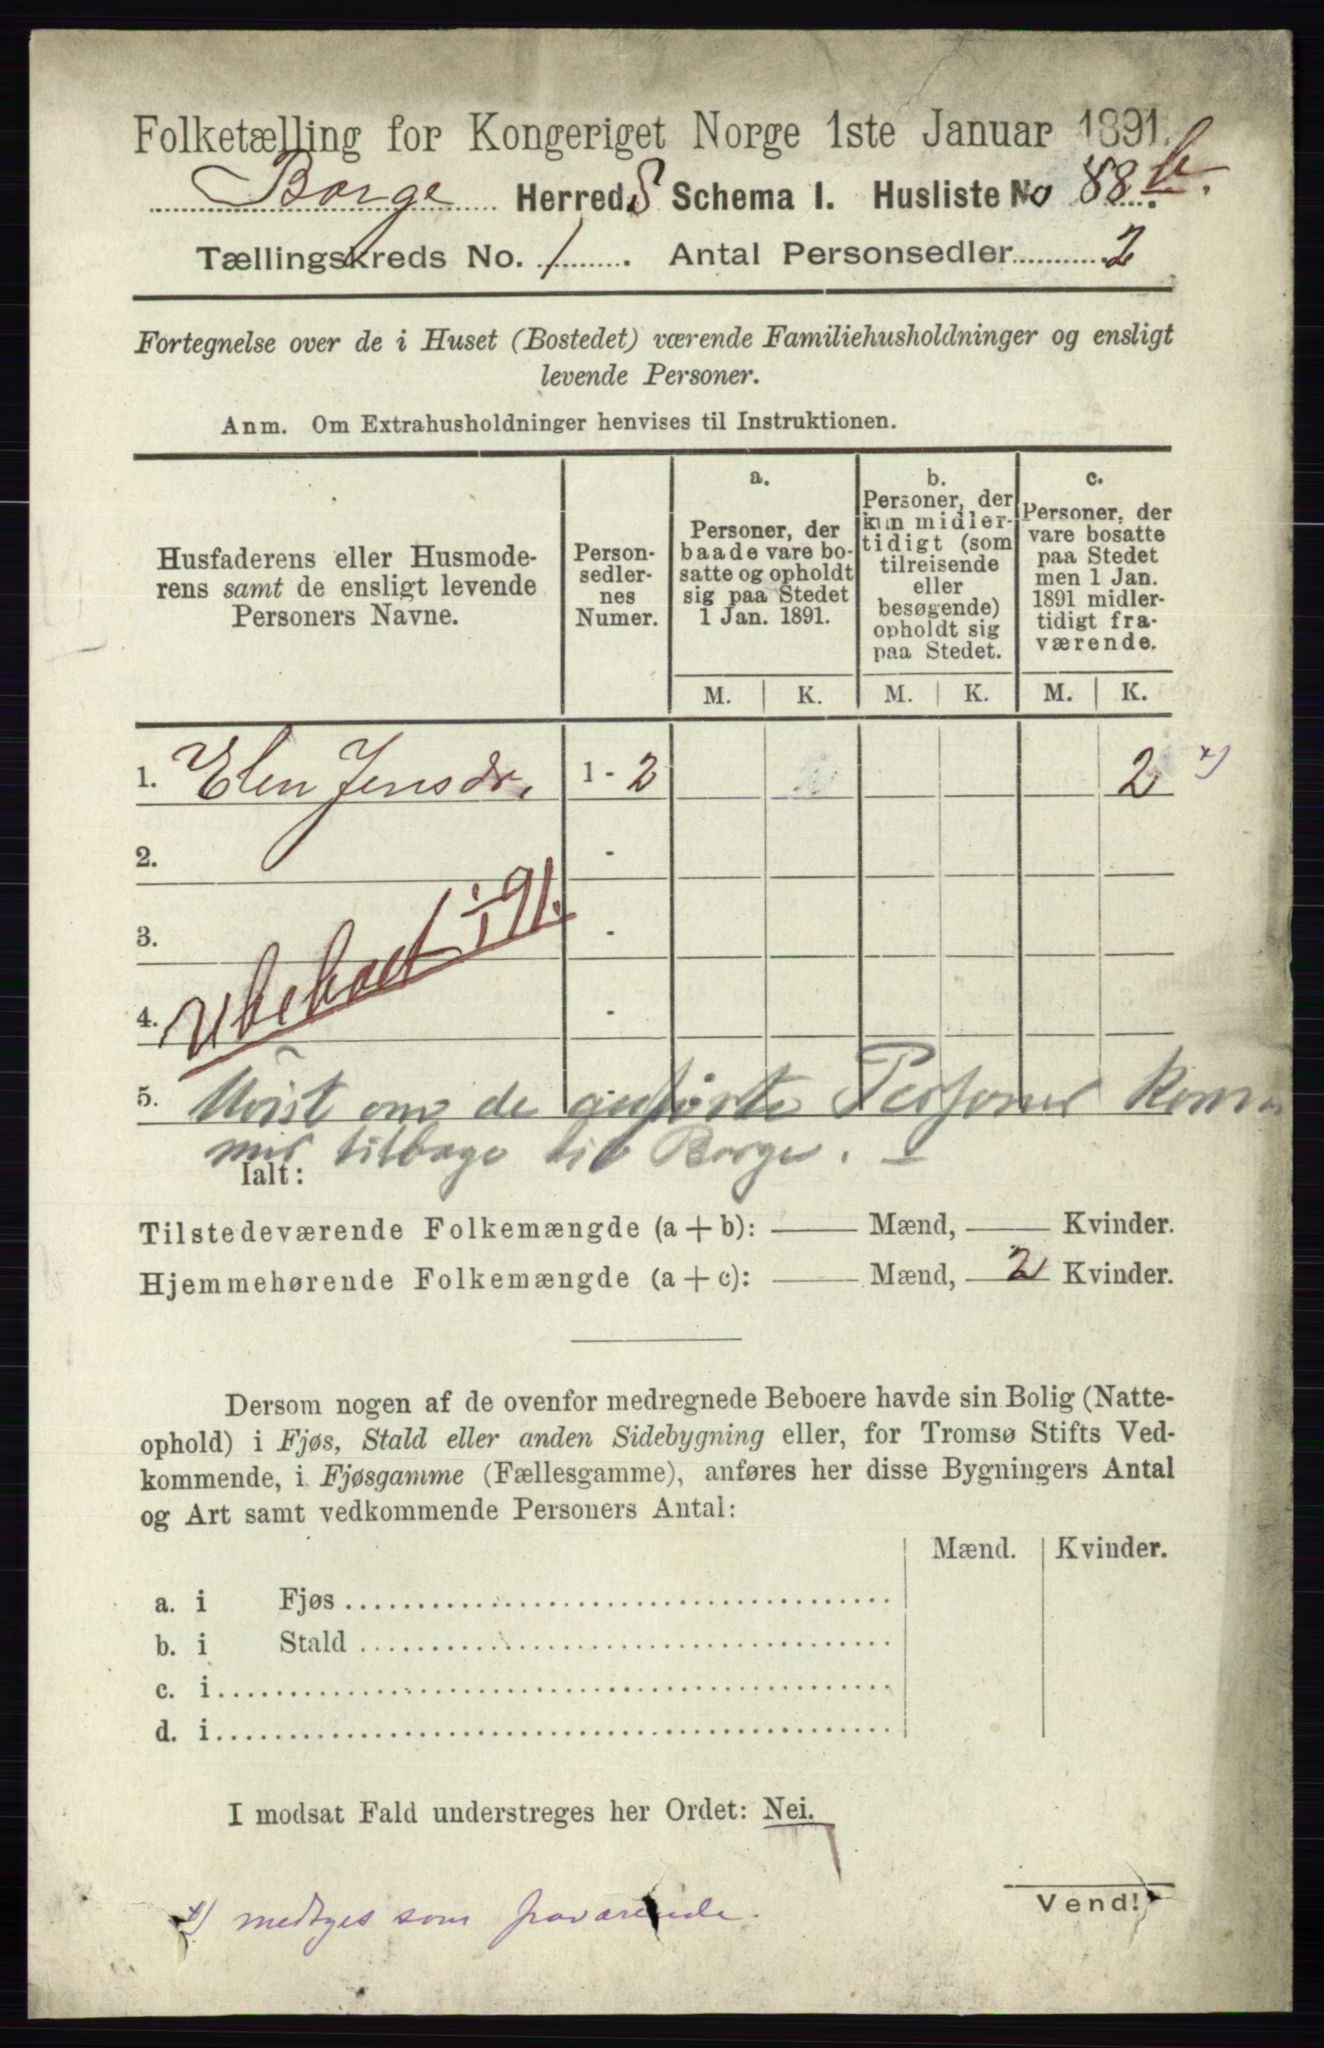 Folketælling for Kongeriget Norge 1ste Januar 1891.
Borge Herred. S Schema I. Husliste No 88 b.
Tællingskreds No. 1. Antal Personsedler 2
Fortegnelse over de i Huset (Bostedet) værende Familiehusholdninger og ensligt
levende Personer.
Anm. Om Extrahusholdninger henvises til Instruktionen.
Husfaderens eller Husmode-
rens samt de ensligt levende
Personers Navne.
Person-
sedler-
nes
Numer.
a.
Personer, der
baade vare bo-
satte og opholdt
sig paa Stedet
1 Jan. 1891.
b.
Personer, der
kun midler-
tidigt (som
tilreisende
eller
besøgende)
opholdt sig
paa Stedet.
c.
Personer, der
vare bosatte
paa Stedet
men 1 Jan.
1891 midler-
tidigt fra-
værende.
M. K. M. K. M. K.
1. Elen Jensdr. 1 - 2 2 x)
2. -
3. -
Ubeboet 1/1 91.
4. -
5. Uvist om de anførte Personer kom-
mer tilbage til Borge. -
Ialt:
Tilstedeværende Folkemængde (a + b): Mænd, Kvinder.
Hjemmehørende Folkemængde (a + c): Mænd, 2 Kvinder.
Dersom nogen af de ovenfor medregnede Beboere havde sin Bolig (Natte-
ophold) i Fjøs, Stald eller anden Sidebygning eller, for Tromsø Stifts Ved-
kommende, i Fjøsgamme (Fællesgamme), anføres her disse Bygningers Antal
og Art samt vedkommende Personers Antal:
Mænd. Kvinder.
a. i Fjøs
b. i Stald
c. i
d. i
I modsat Fald understreges her Ordet: Nei.
Vend!
x) medtges som fraværende.